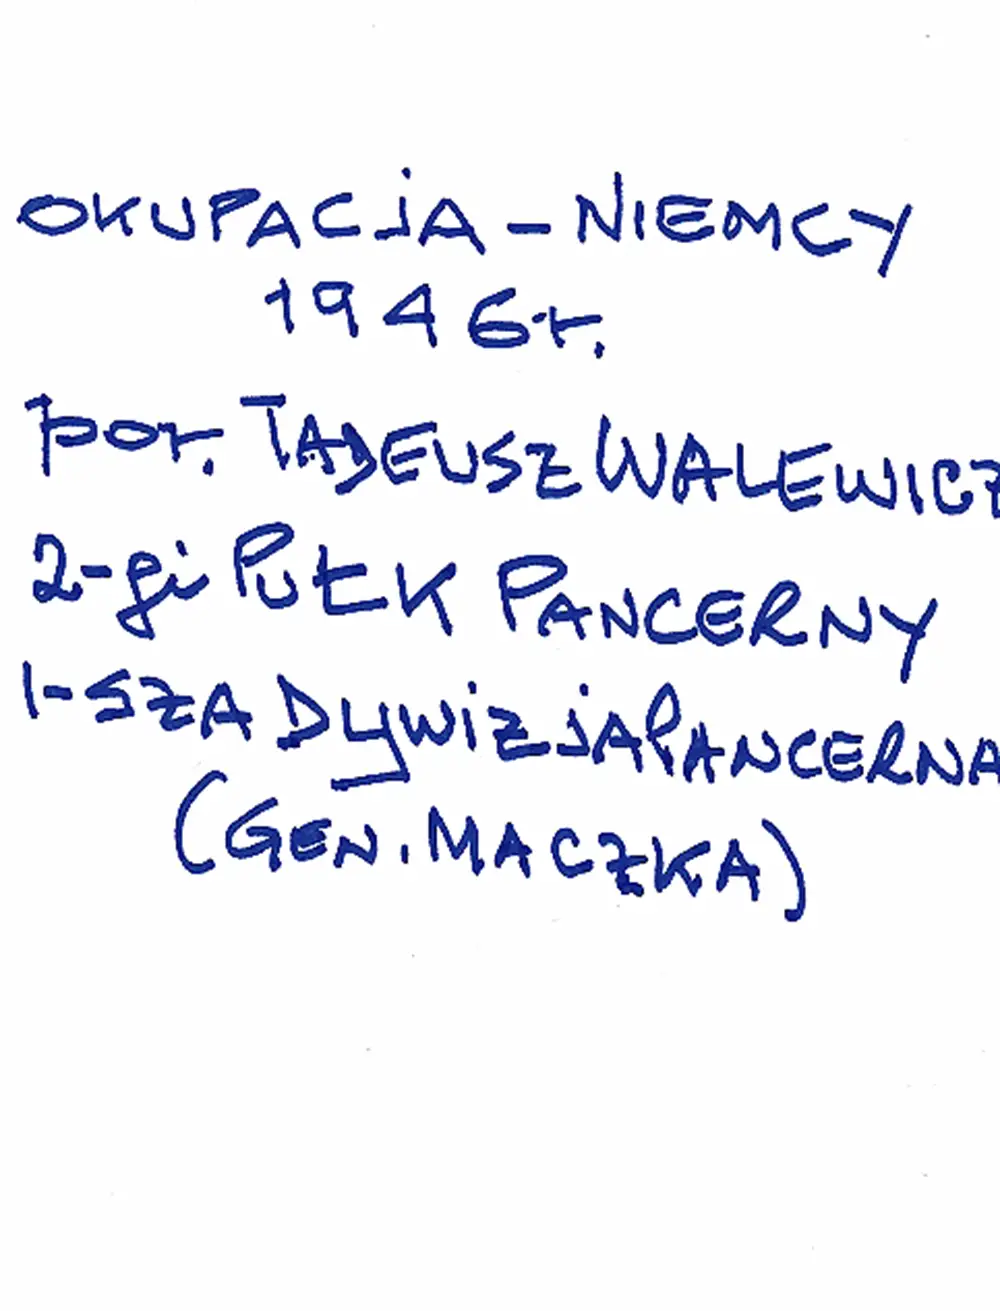 OKUPACJA - NIEMCY
1946r.
por. TADEUSZ WALEWICZ
2-gi PUŁK PANCERNY
1-SZA DYWIZJA PANCERNA
(GEN. MACZKA)